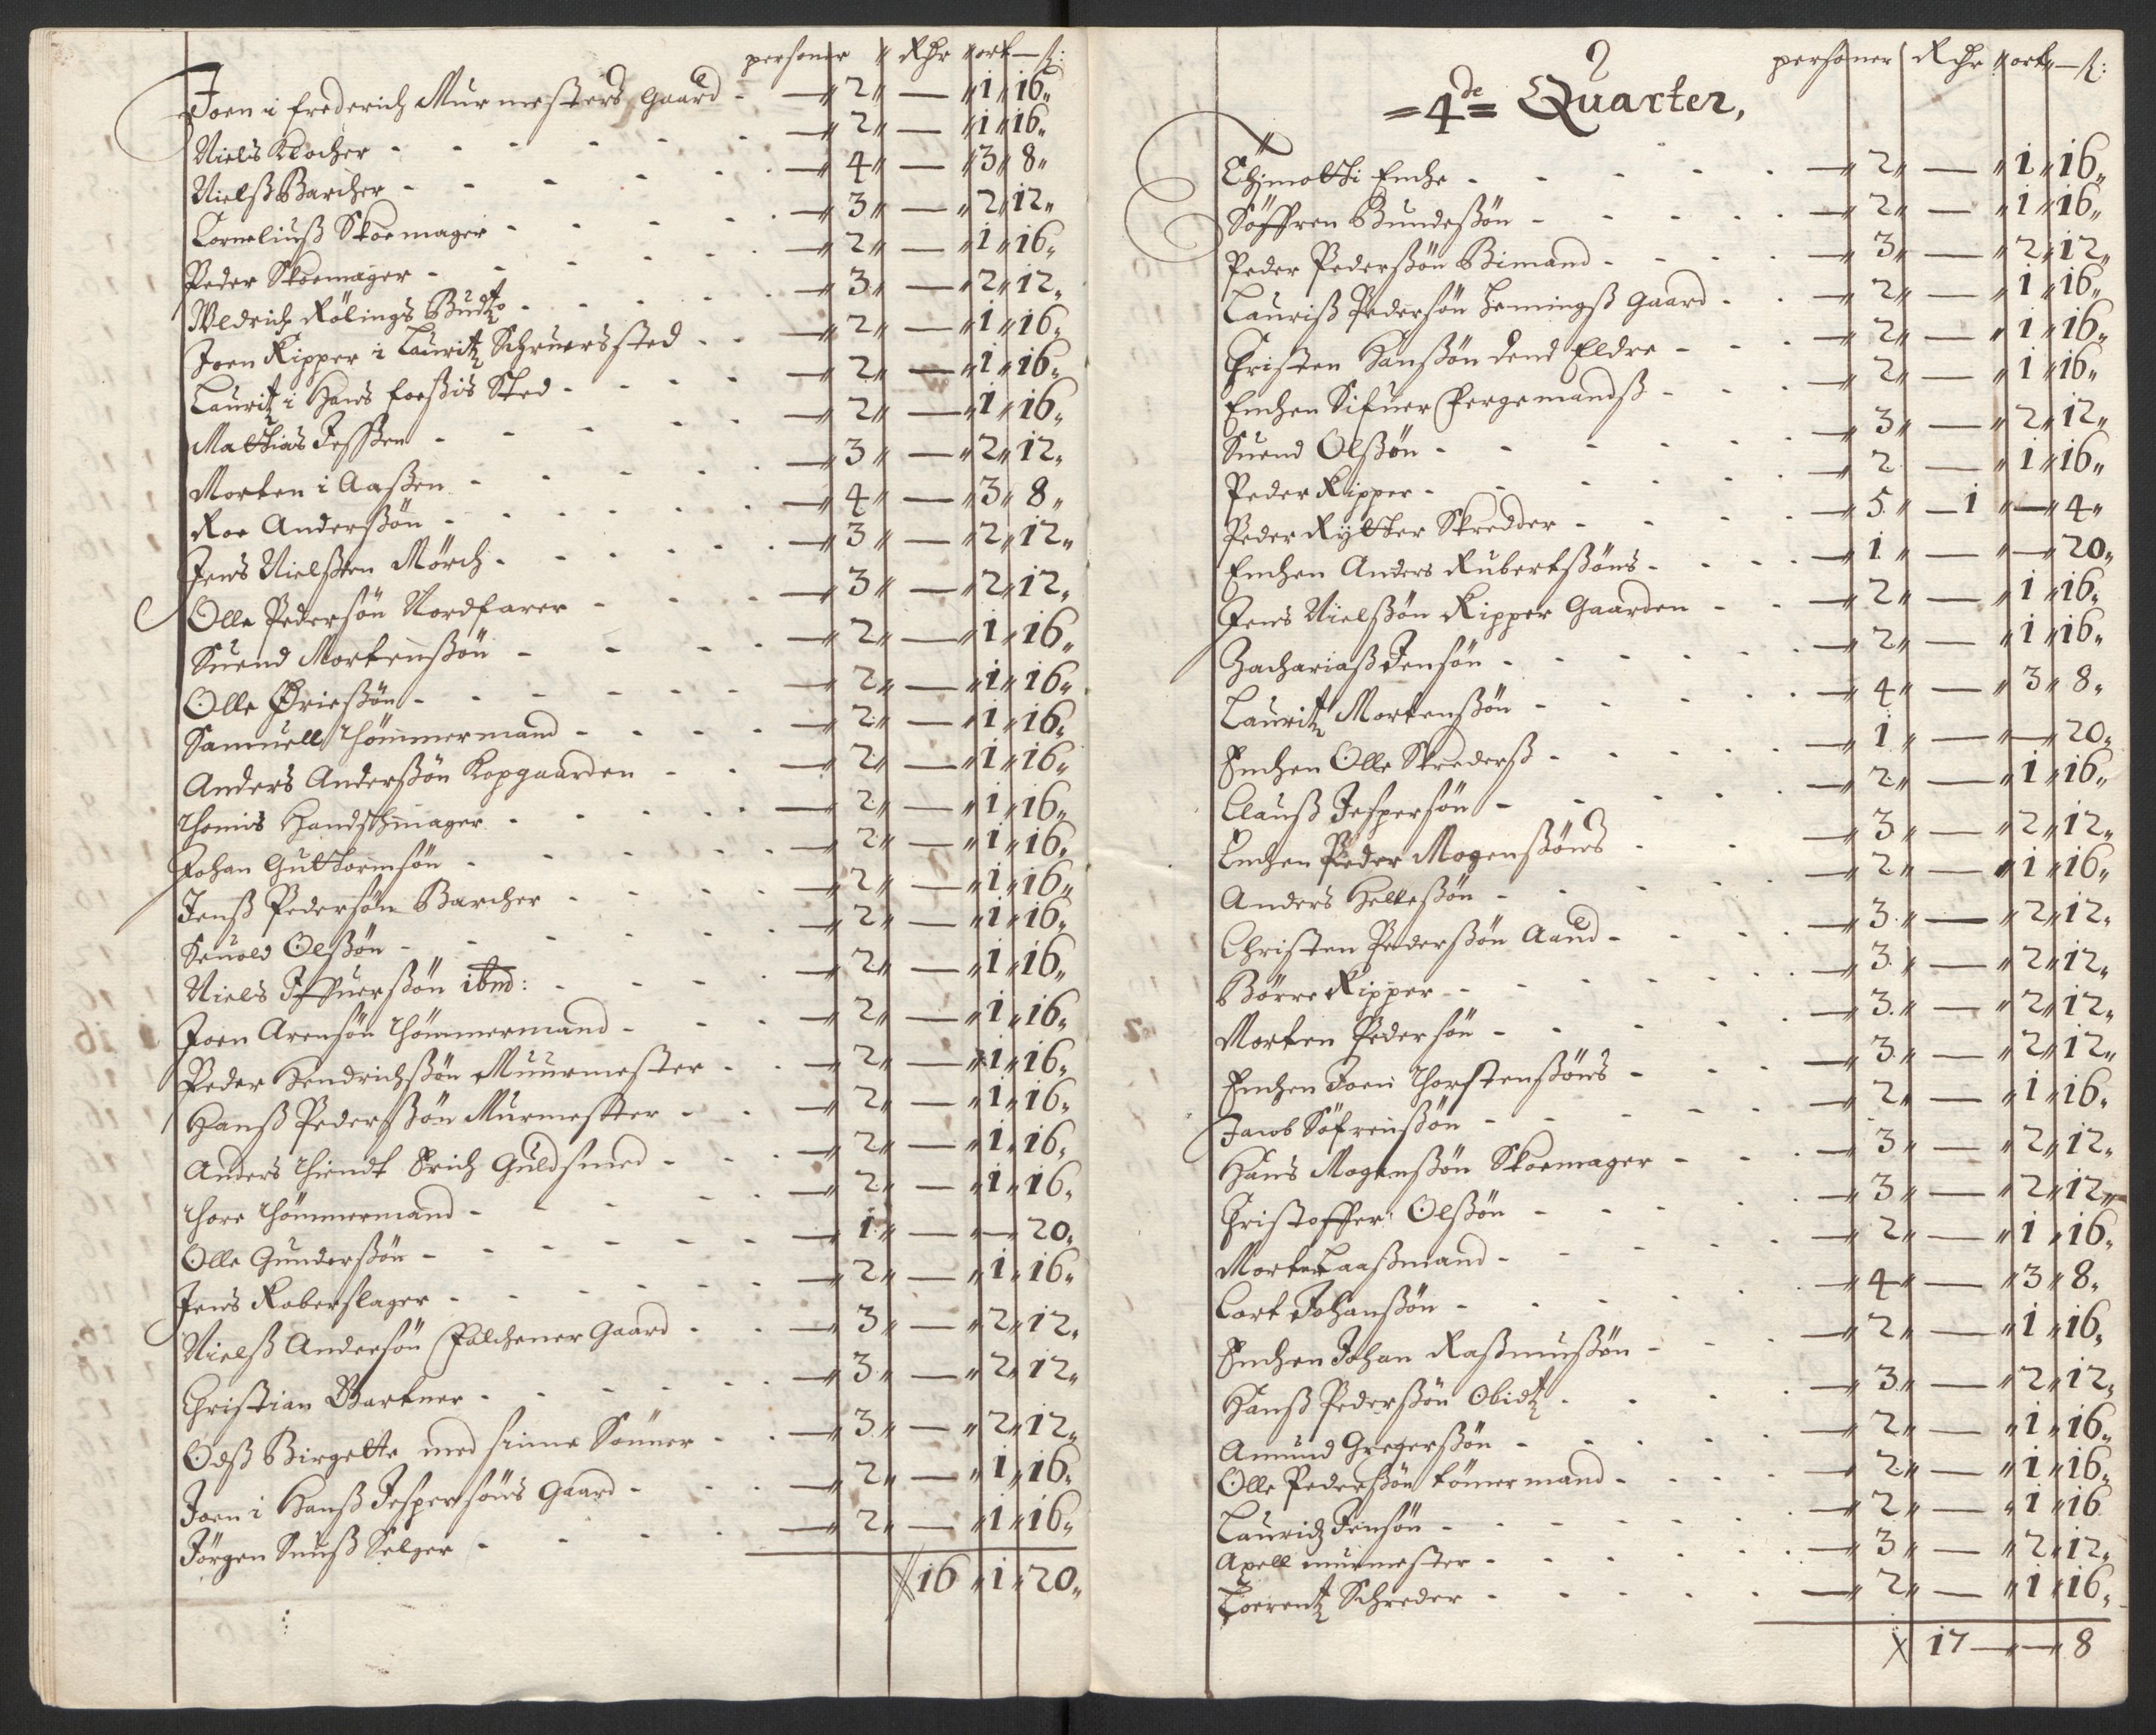 personer Rdr ort ß:
Joen i frederich Murmesters gaard - 2 — 1 16
Niels Klocher - 2 — 1 16
Nielß Barcher - 4 — 3 8
Corneliuß Skoemager - 3 — 2 12
Peder Skoemager - 2 — 1 16
Wldrich Rölings - 3 — 2 12
Joen Kipper i Lauritz Schruerssted - 2 — 1 16
Lauritz i Hans foeßis Sted - 2 — 1 16
Matthias Jeßßen - 2 — 1 16
Morten i Aaßen - 3 — 2 12
Roe Anderßön - 4 — 3 8
Jens Nielßen Mörch - 3 — 2 12
Olle Pedersön Nordfarer - 3 — 2 12
Suend Mortenßön - 2 — 1 16
Olle - 2 — 1 16
Samuell Thömmermand - 2 — 1 16
Anders Anderßön Kopgaarden - 2 — 1 16
Thomis Handschmager - 2 — 1 16
Johan Guttormsön - 2 — 1 16
Jenß Pedersön Barcher - 2 — 1 16
Seuold Olßön - 2 — 1 16
Niels Iffuerßön ibm: - 2 — 1 16
Joen Arensön Thömmermand - 2 — 1 16
Peder Hendrichßön Muurmester - 2 — 1 16
Hanß Pederßön Murmester - 2 — 1 16
Anders Thiendt Erich Guldsmed - 2 — 1 16
Thore Thömmermand - 2 — 1 16
Olle Gunderßön - 1 — — 20
Jens Roberslager - 2 — 1 16
Nielß Andersön Falchener Gaard - 3 — 2 12
Christian Gartner - 3 — 2 12
Odß Birgette med sinne Sönner - 3 — 2 12
Joen i Hanß Jespersöns Gaard - 2 — 1 16
Jörgen Snuß Selger - 2 — 1 16
16 1 20
personer Rdr ort ß:
=4de= Quarter,
Thjmotthi Enche - 2 — 1 16
Söffren Bundeßön - 2 — 1 16
Peder Pederßön Bimand - 3 — 2 12
Lauriß Pedersön Hemingß Gaard - 2 — 1 16
Christen Hanßön dend Elldre - 2 — 1 16
Enchen Sifuer Fergemandß - 2 — 1 16
Suend Olßön - 3 — 2 12
Peder Kipper - 2 — 1 16
Peder Rytter Skredder - 5 — 1 — 4
Enchen Anders Rubertßöns - 1 — — 20
Jens Nielßön Kipper Gaarden - 2 — 1 16
Zachariaß Jensön - 2 — 1 16
Lauritz Mortenßön - 4 — 3 8
Enchen Olle Skrederß - 1 — — 20
Clauß Jespersön - 2 — 1 16
Enchen Peder Mogenßöns - 3 — 2 12
Anders Helleßön - 2 — 1 16
Christen Pederßön Aaud - 3 — 2 12
Börre Kipper - 3 — 2 12
Morten Pedersön - 3 — 2 12
Enchen Joen Thorstenßöns - 3 — 2 12
Jacob Söfrenßön - 2 — 1 16
Hans Mogenßön Skoemager - 3 — 2 12
Christoffer Olßön - 3 — 2 12
Morten Laaßmand - 2 — 1 16
Cort Johanßön - 4 — 3 8
Enchen Johan Raßmußön - 2 — 1 16
Hanß Pederßön Obidtz - 3 — 2 12
Amund Gregerßön - 2 — 1 16
Olle Pederßön tömermand - 2 — 1 16
Lauridz Jensön - 2 — 1 16
Axell murmester - 3 — 2 12
Loerentz Schreder - 2 — 1 16
17 — — 8